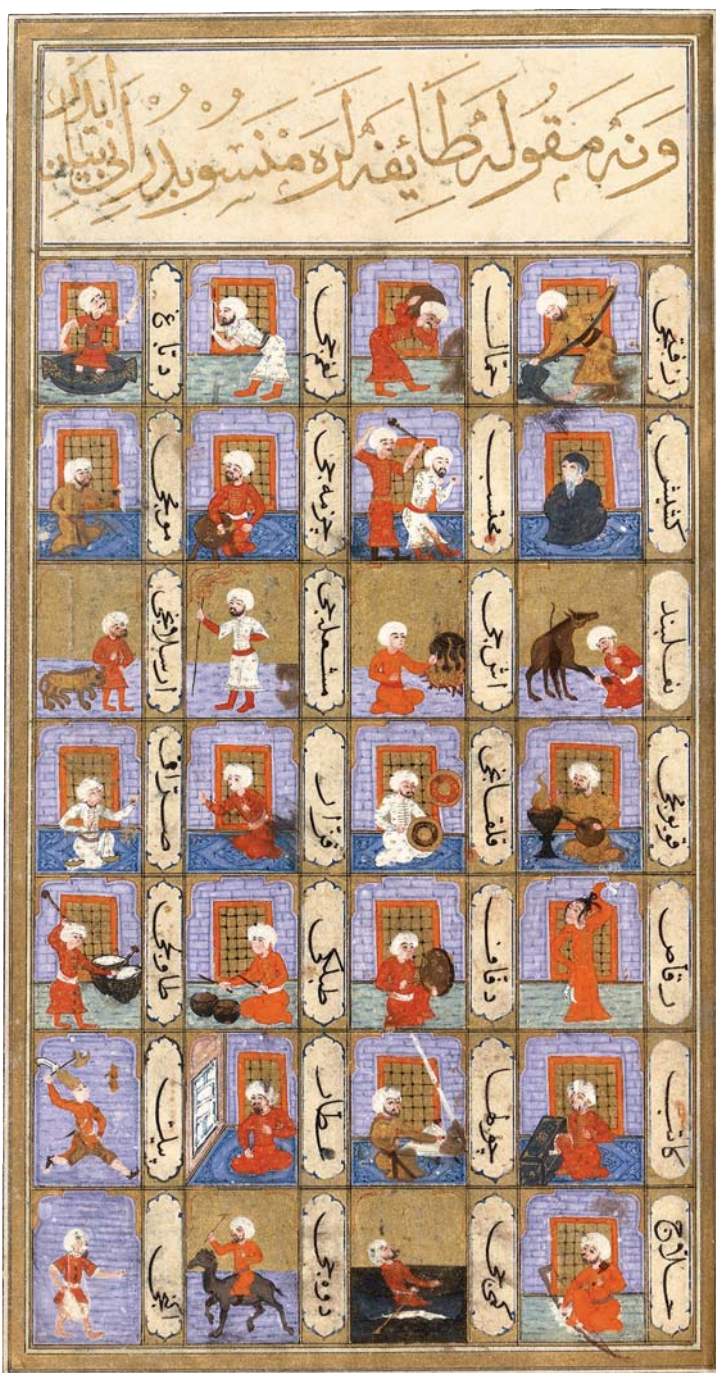 وَنَه مَقُولَه طَائِفَه لَرَه مَنْسُوبْدُرْ اَنِی بَیَان اَیدَر
زفتجی
حمال
لغمجی
دباغ
کشیش
محتسب
چزمه جی
مومجی
نعلبند
اش جی
مشعله جی
ارسلانجی
قویومجی
قلقانجی
قزاز
صراف
رقاص
دفاف
طبلکی
کاتب
جولها
عطار
پیک
حلاج
کمی جی
دوه جی